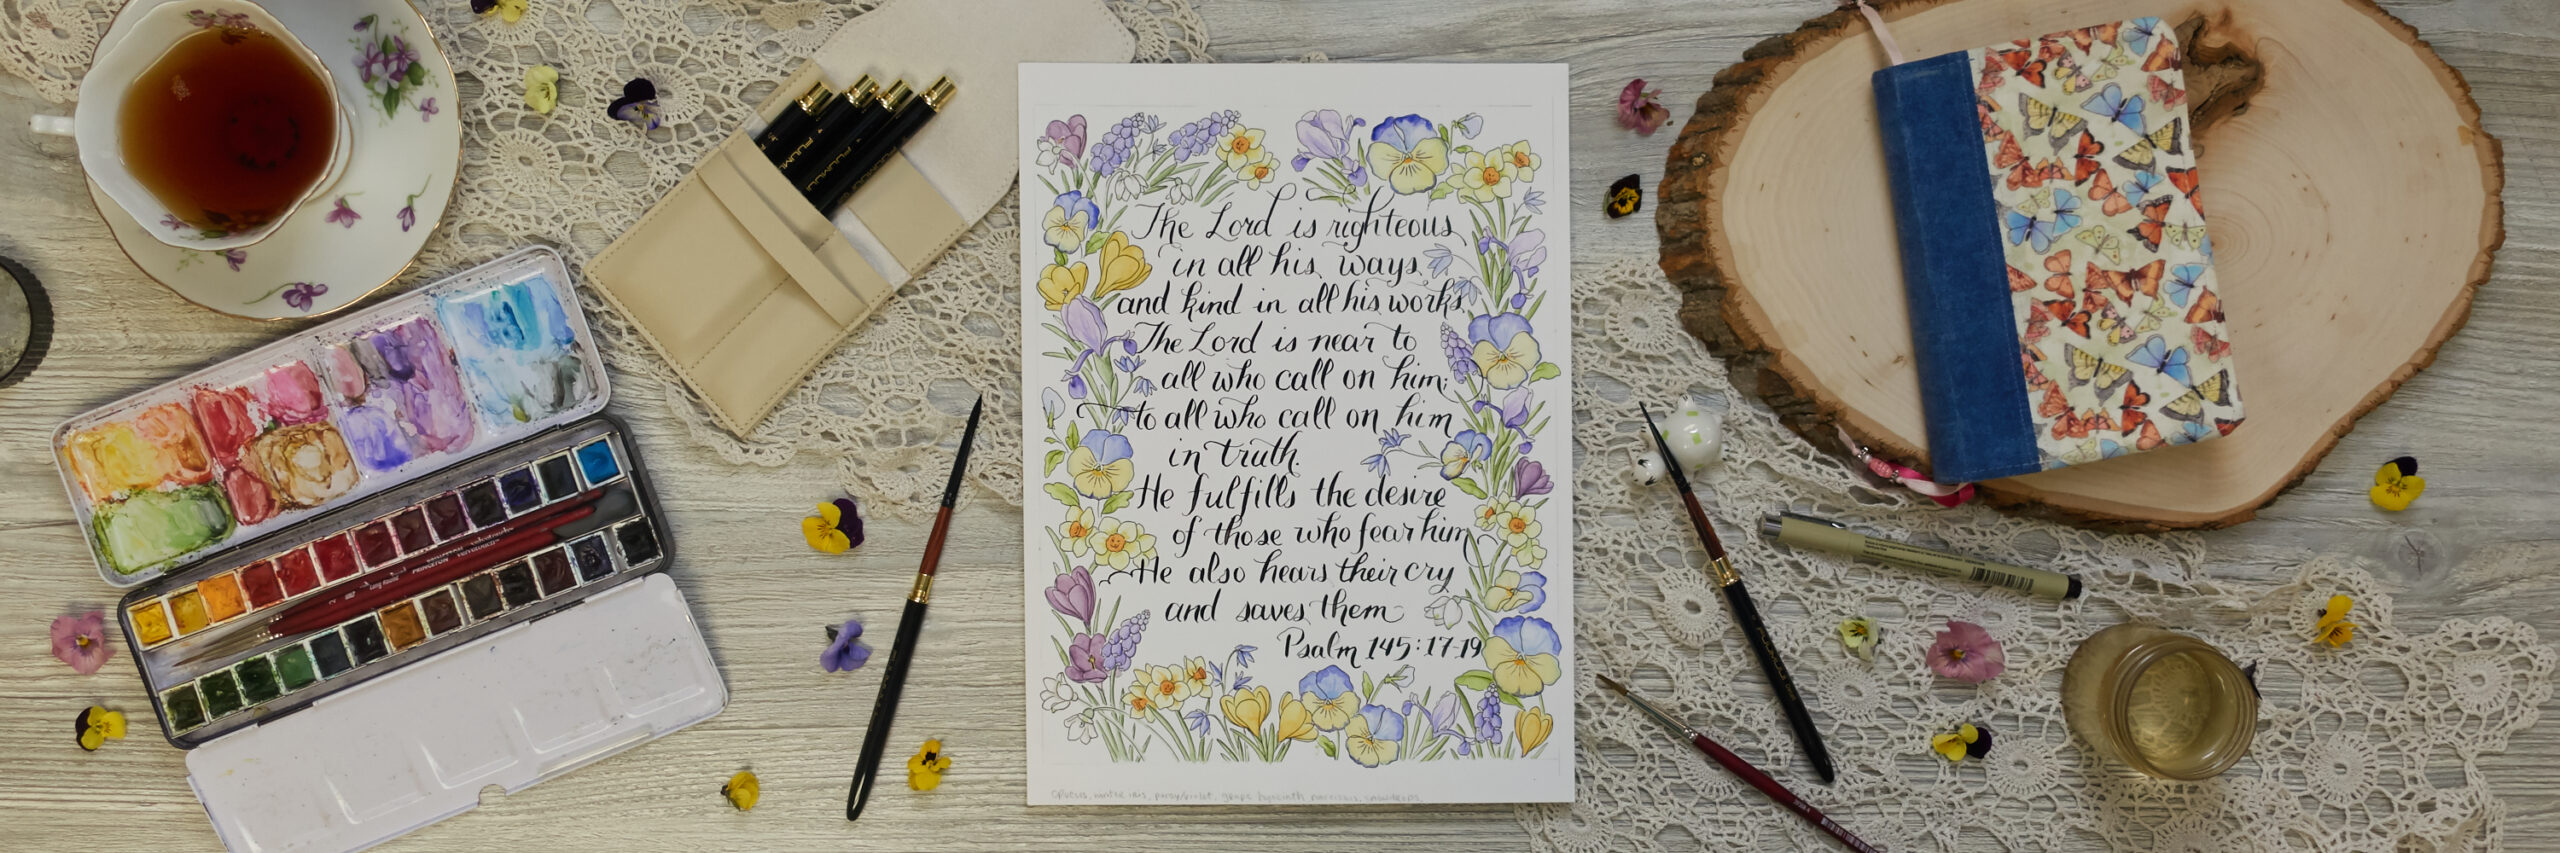 The Lord is righteous
in all his ways
and kind in all his works.
The Lord is near to
all who call on him;
to all who call on him
in truth.
He fulfills the desire
of those who fear him
He also hears their cry
and saves them
Psalm 145:17-19
crocus, winter iris, pansy/violet, grape hyacinth, narcissis, snowdrops
FUUMUUI
FUUMUUI
PRINCETON